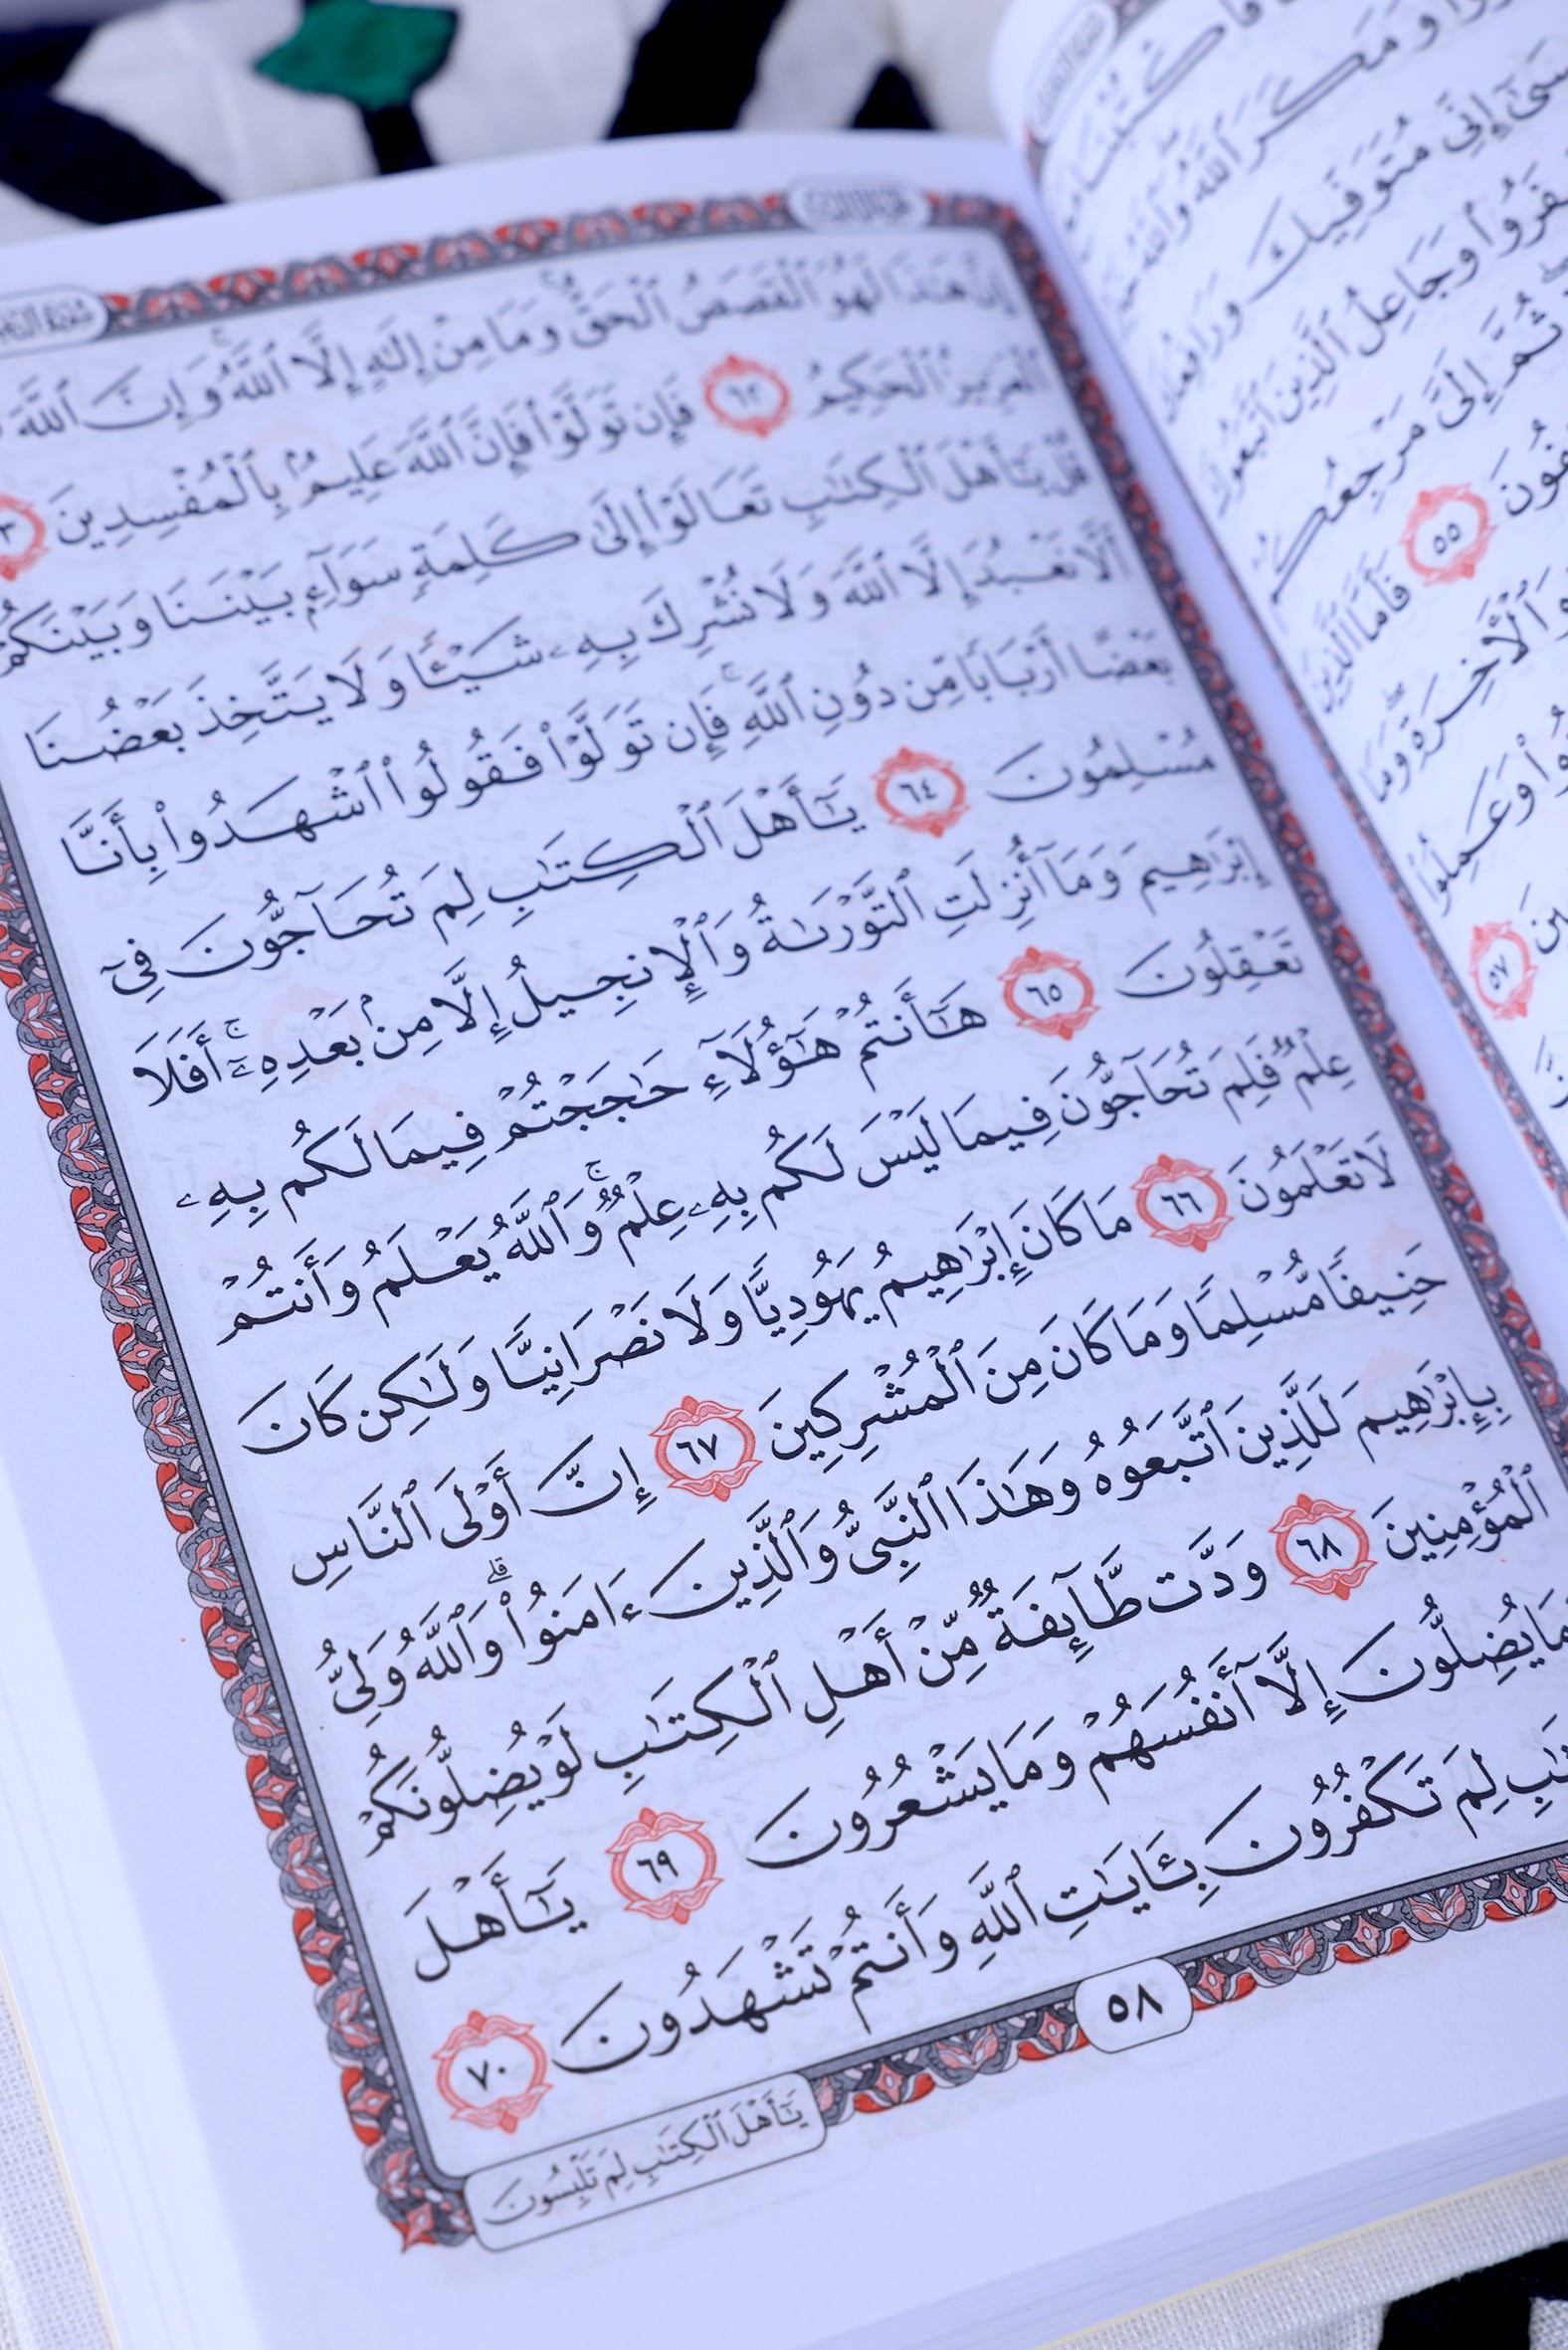 وَمَكَرَ ٱللَّهُ وَٱللَّهُ
إِنِّى مُتَوَفِّيكَ وَرَافِعُكَ
وَجَاعِلُ ٱلَّذِينَ ٱتَّبَعُوكَ
ثُمَّ إِلَىَّ مَرْجِعُكُمْ
٥٥ فَأَمَّا ٱلَّذِينَ
وَٱلْأَخِرَةِ وَمَا
وَعَمِلُوا۟
٥٧
إِنَّ هَٰذَا لَهُوَ ٱلْقَصَصُ ٱلْحَقُّ ۚ وَمَا مِنْ إِلَٰهٍ إِلَّا ٱللَّهُ ۚ وَإِنَّ ٱللَّهَ
ٱلْعَزِيزُ ٱلْحَكِيمُ ٦٢ فَإِن تَوَلَّوْا۟ فَإِنَّ ٱللَّهَ عَلِيمٌۢ بِٱلْمُفْسِدِينَ ٦٣
قُلْ يَٰٓأَهْلَ ٱلْكِتَٰبِ تَعَالَوْا۟ إِلَىٰ كَلِمَةٍ سَوَآءٍۭ بَيْنَنَا وَبَيْنَكُمْ
أَلَّا نَعْبُدَ إِلَّا ٱللَّهَ وَلَا نُشْرِكَ بِهِۦ شَيْـًٔا وَلَا يَتَّخِذَ بَعْضُنَا
بَعْضًا أَرْبَابًا مِّن دُونِ ٱللَّهِ ۚ فَإِن تَوَلَّوْا۟ فَقُولُوا۟ ٱشْهَدُوا۟ بِأَنَّا
مُسْلِمُونَ ٦٤ يَٰٓأَهْلَ ٱلْكِتَٰبِ لِمَ تُحَآجُّونَ فِىٓ
إِبْرَٰهِيمَ وَمَآ أُنزِلَتِ ٱلتَّوْرَىٰةُ وَٱلْإِنجِيلُ إِلَّا مِنۢ بَعْدِهِۦٓ ۚ أَفَلَا
تَعْقِلُونَ ٦٥ هَٰٓأَنتُمْ هَٰٓؤُلَآءِ حَٰجَجْتُمْ فِيمَا لَكُم بِهِۦ
عِلْمٌ فَلِمَ تُحَآجُّونَ فِيمَا لَيْسَ لَكُم بِهِۦ عِلْمٌ ۚ وَٱللَّهُ يَعْلَمُ وَأَنتُمْ
لَا تَعْلَمُونَ ٦٦ مَا كَانَ إِبْرَٰهِيمُ يَهُودِيًّا وَلَا نَصْرَانِيًّا وَلَٰكِن كَانَ
حَنِيفًا مُّسْلِمًا وَمَا كَانَ مِنَ ٱلْمُشْرِكِينَ ٦٧ إِنَّ أَوْلَى ٱلنَّاسِ
بِإِبْرَٰهِيمَ لَلَّذِينَ ٱتَّبَعُوهُ وَهَٰذَا ٱلنَّبِىُّ وَٱلَّذِينَ ءَامَنُوا۟ ۗ وَٱللَّهُ وَلِىُّ
ٱلْمُؤْمِنِينَ ٦٨ وَدَّت طَّآئِفَةٌ مِّنْ أَهْلِ ٱلْكِتَٰبِ لَوْ يُضِلُّونَكُمْ
مَا يُضِلُّونَ إِلَّآ أَنفُسَهُمْ وَمَا يَشْعُرُونَ ٦٩ يَٰٓأَهْلَ
لِمَ تَكْفُرُونَ بِـَٔايَٰتِ ٱللَّهِ وَأَنتُمْ تَشْهَدُونَ ٧٠
٥٨
يَٰٓأَهْلَ ٱلْكِتَٰبِ لِمَ تَلْبِسُونَ